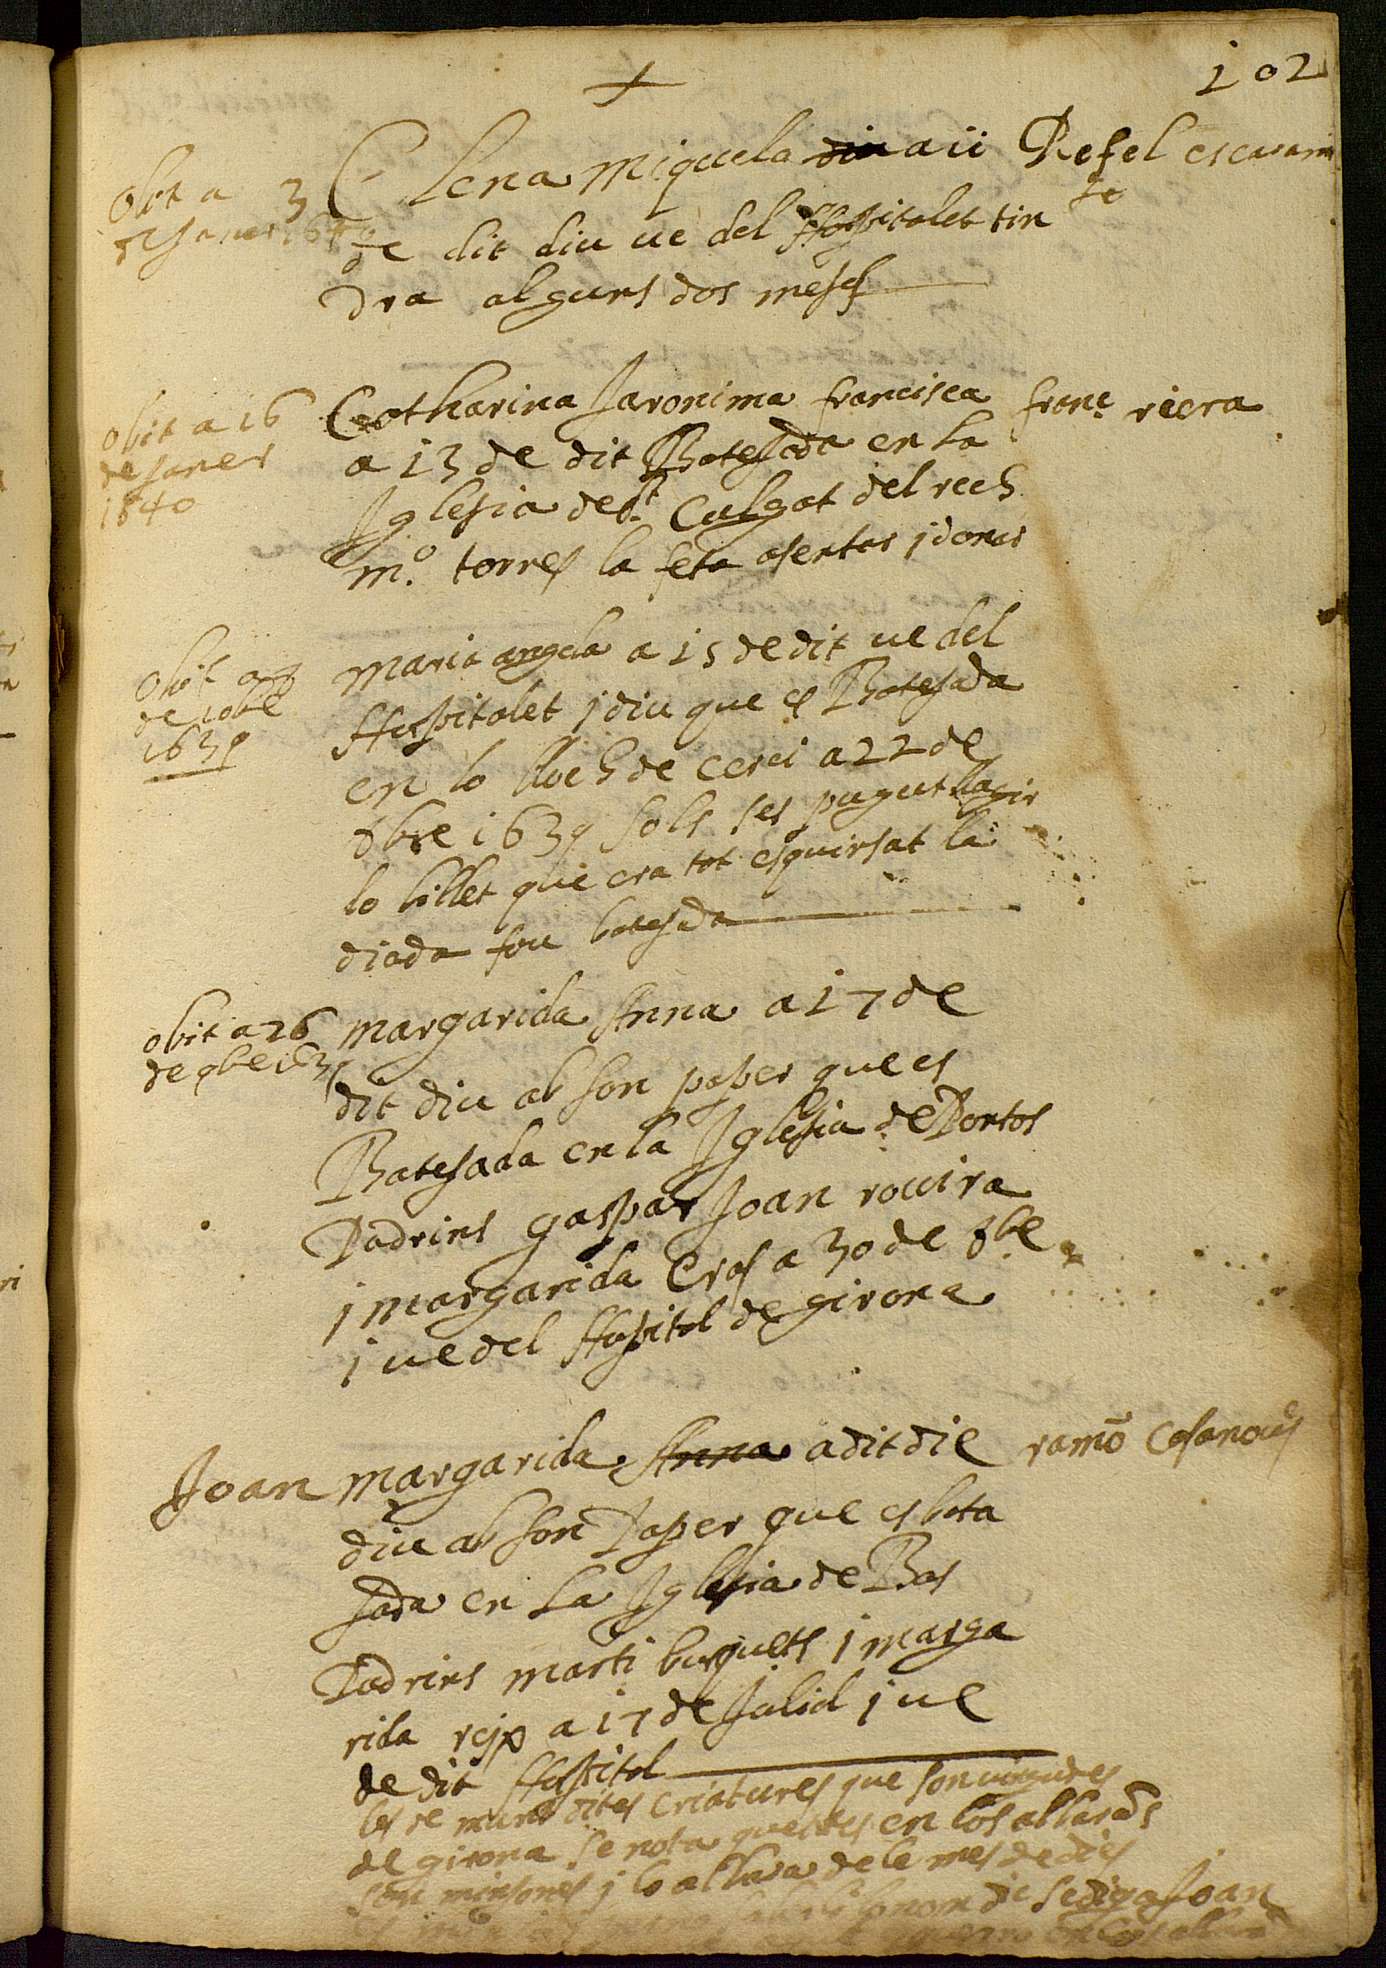 +
102
Obit a 3
de Janer 1640
Elena Miquela diu aii Refel escarami
de dit diu ve del Hospitalet tin
dra alguns dos mesos
obit a 16
de Janer
1640
Catharina Jaronima francisca franc riera
a 13 de dit Batejada en la
Iglesia de St. Culgat del rech
mo. torres la feta asentar y donar
Obit a
de xbre
1639
Maria angela a 15 de dit ve del
Hospitalet j diu que es Batejada
en lo lloch de Cerci a 22 de
8bre 1639 sols ses pugut llagir
lo billet que era tot esquinsat la
diada fou batejada
obit a 26
de 9bre 1639
Margarida Anna a 17 de
dit diu ab son paper que es
Batejada en la Iglesia de Portos
Padrins gaspar Joan rovira
j margarida Eras a 30 de 8bre
j ve del Hospital de girona
Joan Margarida Anna a dit die ramo Casanoves
diu ab son Paper que es bata
jada en la Iglesia de Bas
Padrins marti busquets j marga
rida rejp a 17 de Juliol j ve
de dit Hospital
criatures que son vingudes
de girona se nota que en los albarans
j lo albara de la mes
nom de se diga Joan